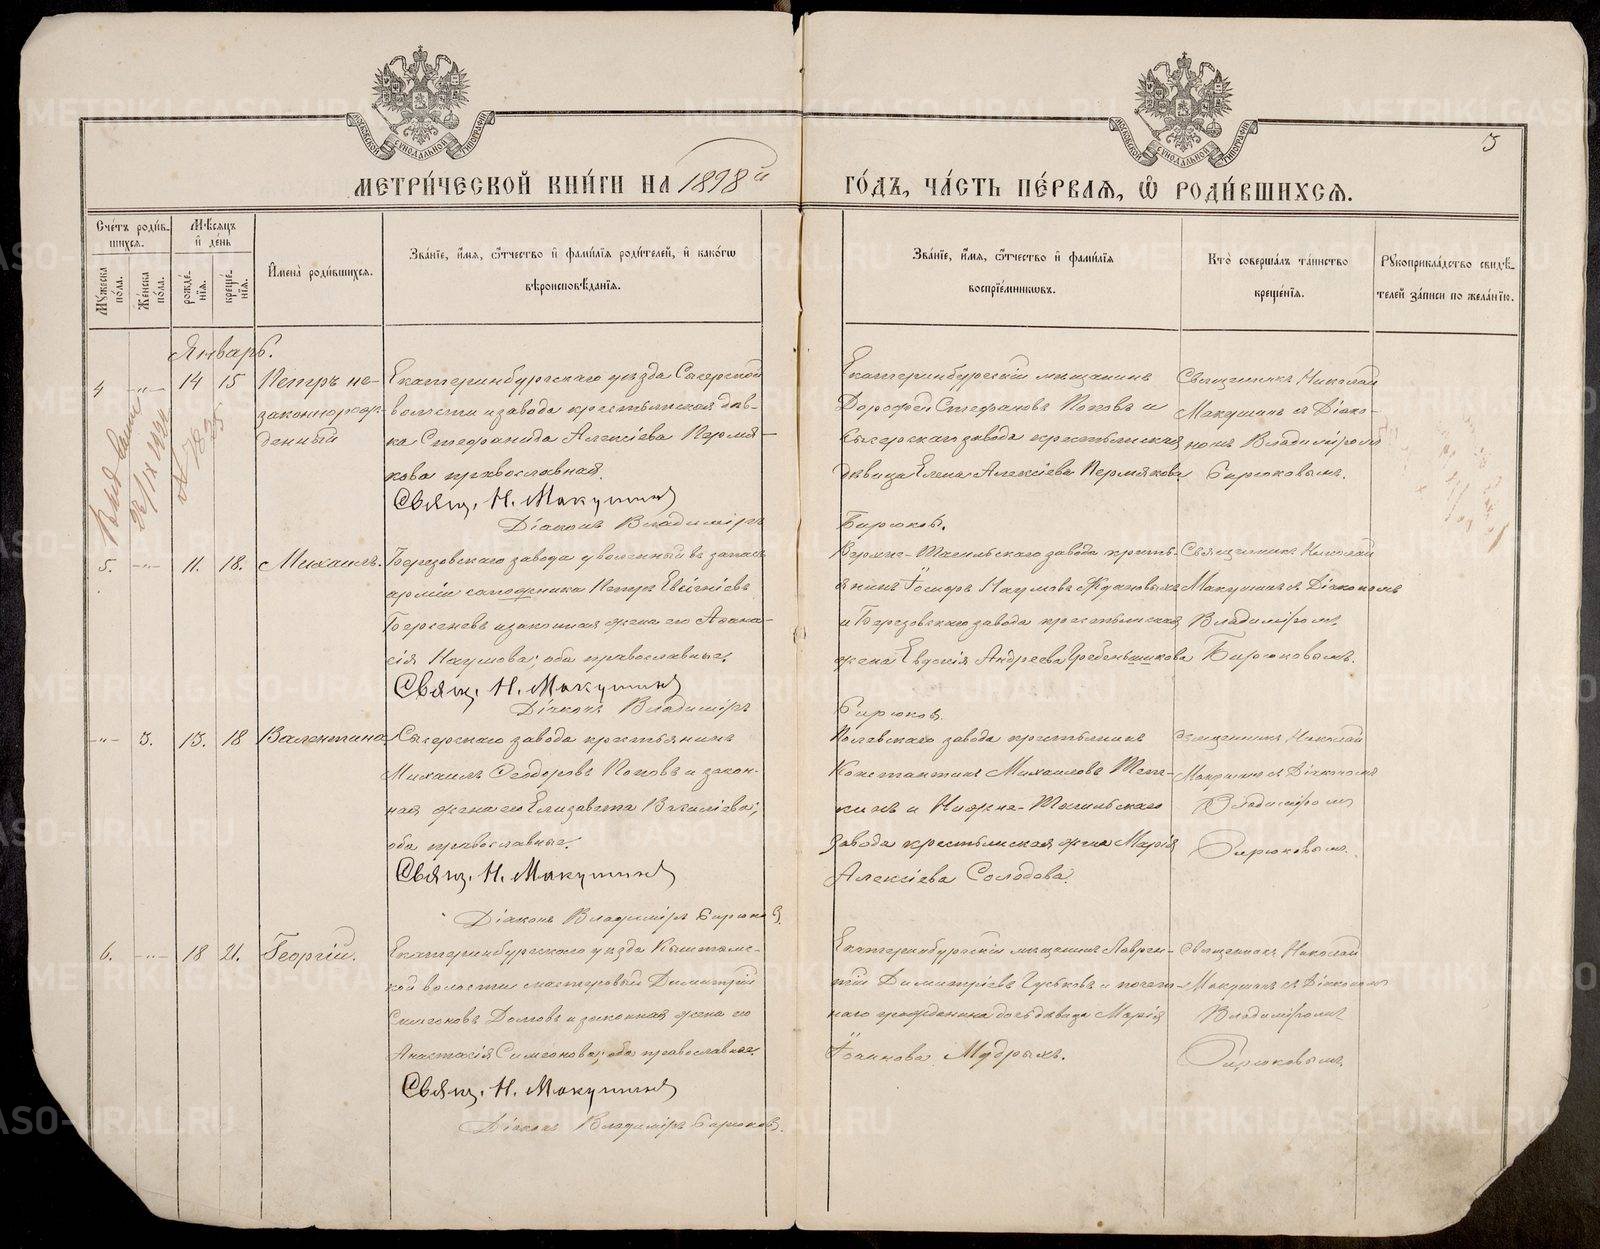 МОСКОВСКОЙ СѴНОДАЛЬНОЙ ТИПОГРАФІИ
МОСКОВСКОЙ СѴНОДАЛЬНОЙ ТИПОГРАФІИ
3
МЕТРИ́ЧЕСКОЙ КНИ́ГИ НА 1898й ГО́ДЪ, ЧА́СТЬ ПЕ́РВАѦ, Ѡ РОДИ́ВШИХСѦ.
Сче́тъ роди́вшихсѧ.
Му́жеска по́ла.
Же́нска по́ла.
Мѣ́сяцъ и де́нь
рожде́нїѧ.
креще́нїѧ.
И҆мена̀ роди́вшихсѧ.
Зва́нїе, и҆́мѧ, ѻ҆́тчество и҆ фами́лїѧ роди́телей, и҆ како́гѡ вѣроисповѣ́данїѧ.
Зва́нїе, и҆́мѧ, ѻ҆́тчество и҆ фами́лїѧ воспрїе́мникѡвъ.
Кто̀ соверша́лъ та́инство креще́нїѧ.
Рукоприкла́дство свидѣ́телей за́писи по жела́нїю.
Январь.
4 -„- 14 15 Петръ не-
законнорож-
денный
Екатеринбургскаго уѣзда Сысертской
волости и завода крестьянская дѣв-
ка Стефанида Алексіева Пермя-
кова православная.
Свящ. Н. Макушинъ
Діаконъ Владиміръ
Екатеринбургскій мѣщанинъ
Дорофей Стефановъ Поповъ и
Сысертскаго завода крестьянская
дѣвица Елена Алексіева Пермякова
Бирюковъ.
Священникъ Николай
Макушинъ съ Діако-
номъ Владиміромъ
Бирюковымъ.
22/IX 1924
№ 7825
5. -„- 11. 18. Михаилъ.
Березовскаго завода уволенный въ запасъ
арміи сапожника Петръ Евгеніевъ
Берсеневъ и законная жена его Афана-
сія Наумова; оба православные.
Свящ. Н. Макушинъ
Діаконъ Владиміръ
Верхне-Тагильскаго завода кресть-
янинъ Наумовъ Ждановыхъ
и Березовскаго завода крестьянская
жена Евдокія Андреева Гребеньщикова
Бирюковъ.
Священникъ Николай
Макушинъ съ Діакономъ
Владиміромъ
Бирюковымъ.
-„- 3. 13. 18 Валентина.
Сысертскаго завода крестьянинъ
Михаилъ Ѳеодоровъ Поповъ и закон-
ная жена его Елизавета Василіева;
оба православные.
Свящ. Н. Макушинъ
Діаконъ Владиміръ Бирюковъ.
Полевскаго завода крестьянинъ
Константинъ Михаиловъ Теп-
кинъ и Нижне-Тагильскаго
завода крестьянская жена Марія
Алексіева Солодова.
Священникъ Николай
Макушинъ съ Діакономъ
Владиміромъ
Бирюковымъ.
6. -„- 18 21. Георгій.
Екатеринбургского уѣзда Кыштымс-
кой волости мастеровый Димитрій
Симеоновъ Долговъ и законная жена его
Анастасія Симеонова; оба православные.
Свящ. Н. Макушинъ
Діаконъ Владиміръ Бирюковъ.
Екатеринбургскій мѣщанинъ Лаврен-
тій Димитріевъ Гуськовъ и почет-
наго гражданина дочь дѣвица Марія
Іоаннова Мудрыхъ.
Священникъ Николай
Макушинъ съ Діакономъ
Владиміромъ
Бирюковымъ.
METRIKI.GASO-URAL.RU